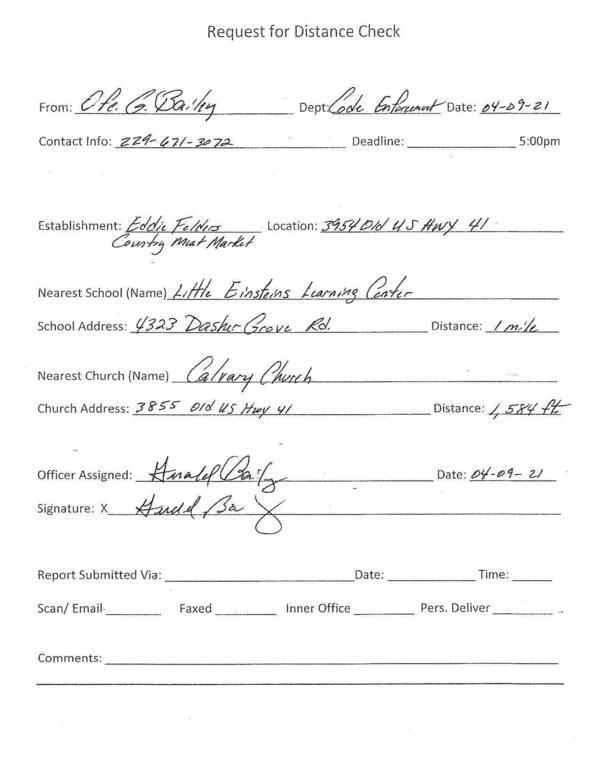 Request for Distance Check
From: Ofc. G. Bailey Dept: Code Enforcement Date: 04-09-21
Contact Info: 229-671-3072 Deadline: 5:00pm
Establishment: Eddie Felders Location: 3954 Old US HWY 41
Country Meat Market
Nearest School (Name) Little Einsteins Learning Center
School Address: 4323 Dasher Grove Rd. Distance: 1 mile
Nearest Church (Name) Calvary Church
Church Address: 3855 Old US Hwy 41 Distance: 1,584 ft
Officer Assigned: Date: 04-09-21
Signature: X
Report Submitted Via: Date: Time:
Scan/ Email Faxed Inner Office Pers. Deliver
Comments: